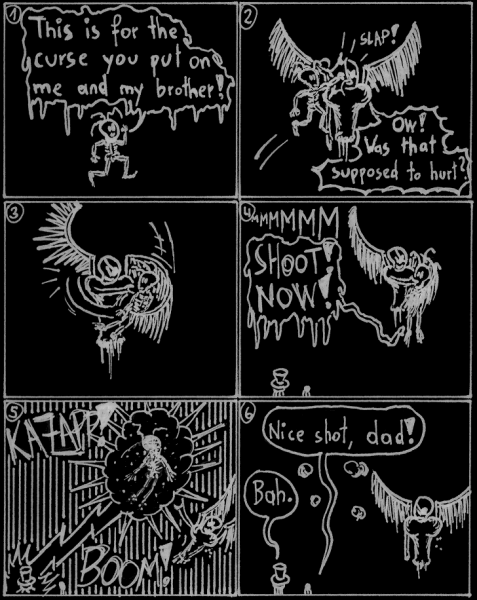 1
This is for the
curse you put on
me and my brother!
2
SLAP!
Ow!
Was that
supposed to hurt?
3
4
MMMMMM
SHOOT!
NOW!
5
KAZAPP!
BOOM!
6
Nice shot, dad!
Bah.